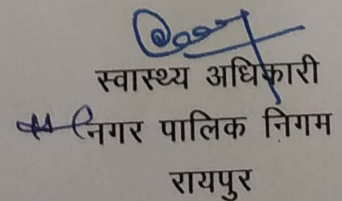 स्वास्थ्य अधिकारी
नगर पालिक निगम
रायपुर